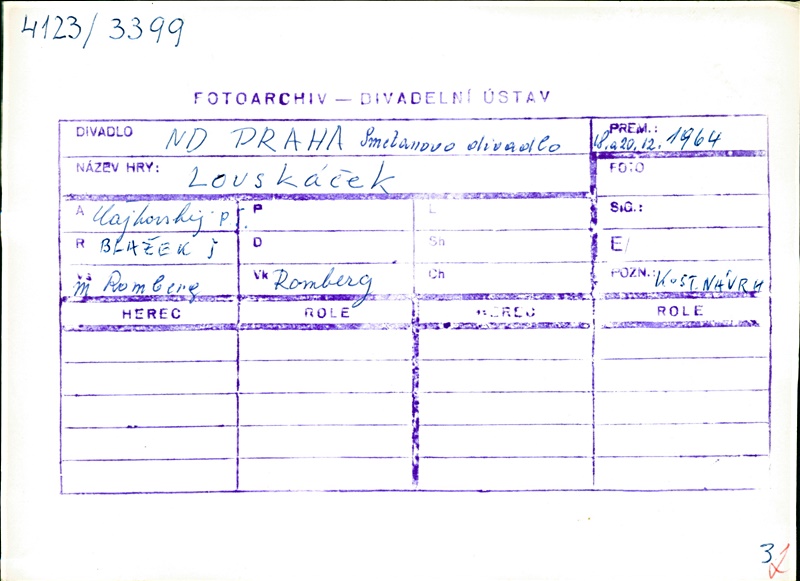 4123/3399
FOTOARCHIV — DIVADELNÍ ÚSTAV
DIVADLO ND PRAHA Smetanovo divadlo PREM.: 18. a 20. 12. 1964
NÁZEV HRY: LOUSKÁČEK FOTO
A Čajkovskij P. P L SIG.:
R BLAŽEK J D Sn E/
M Romberg Vk Romberg Ch POZN.: KOST. NÁVRH
HEREC ROLE HEREC ROLE
3